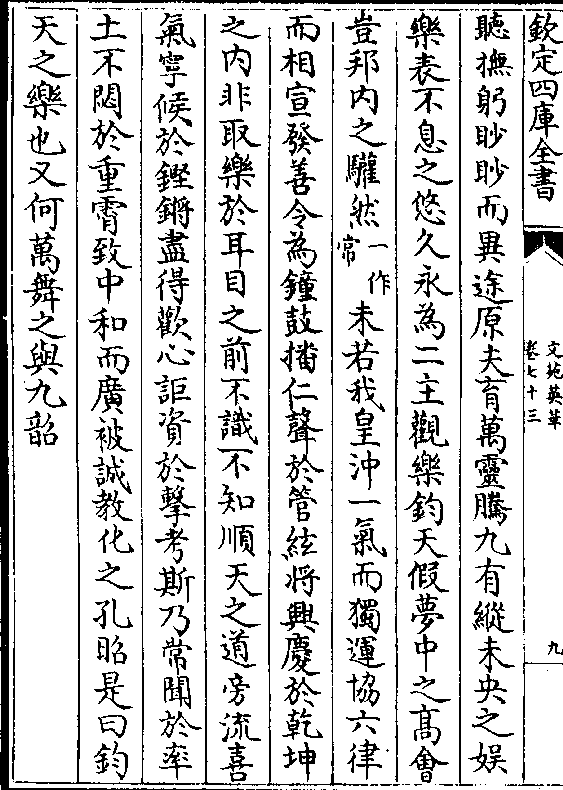 欽定四庫全書
文苑英華
卷七十三
九
聽撫躬眇眇而異途原夫育萬靈騰九有縱未央之娱
樂表不息之悠久永為二主觀樂鈞天假夢中之髙會
豈邦内之驩然一作常未若我皇沖一氣而獨運協六律
而相宣發善令為鐘鼓播仁聲於管絃將興慶於乾坤
之内非取樂於耳目之前不識不知順天之道旁流喜
氣寧候於鏗鏘盡得歡心詎資於擊考斯乃常聞於率
土不閟於重霄致中和而廣被誠教化之孔昭是曰鈞
天之樂也又何萬舞之與九韶